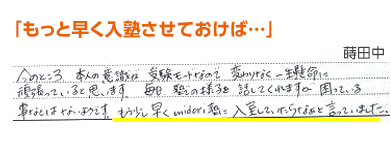 「もっと早く入塾させておけば…」
蒔田中
今のところ 本人の意識が 受験モードなので 変わりなく 一生懸命に
頑張っていると思います。毎日 塾の様子を 話してくれますが 困っている
事などはないようです。もう少し 早く midori塾に 入塾していたらなぁと 言っていました。